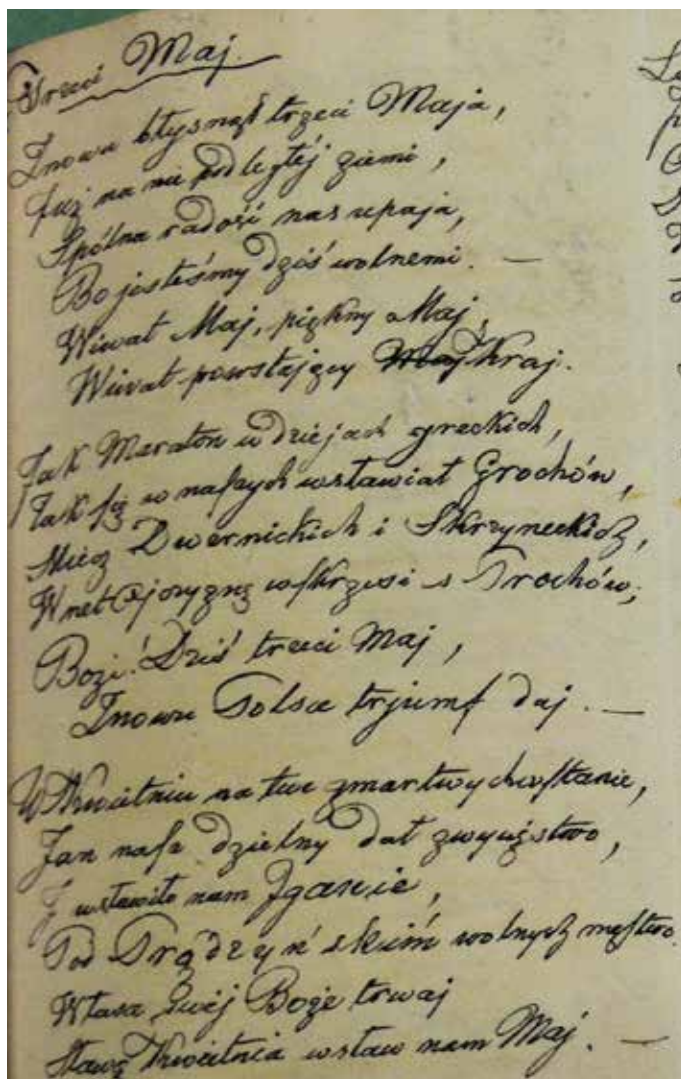 Trzeci Maj.
Znowu błysnął trzeci Maja,
Już na nie podległéj ziemi,
Spólna radość nas upaja,
Bo jesteśmy dziś wolnemi. —
Wiwat Maj, piękny Maj,
Wiwat powstający Kraj.
Jak Maraton w dziejach greckich,
Tak się w naszych wsławiał Grochów,
Miecz Dwernickich i Skrzyneckich,
Wnet Ojczyznę wskrzesi s Prochów;
Boże! Dziś trzeci Maj,
Znowu Polsce trjumf daj. —
W Kwietniu na twe zmartwychwstanie,
Jan nasz dzielny dał zwycięstwo,
I wsławiło nam Iganie,
Pod Prądzyńskim wolnych męstwo.
Boże trwaj
Sławę Kwietnia wsław nam Maj. —